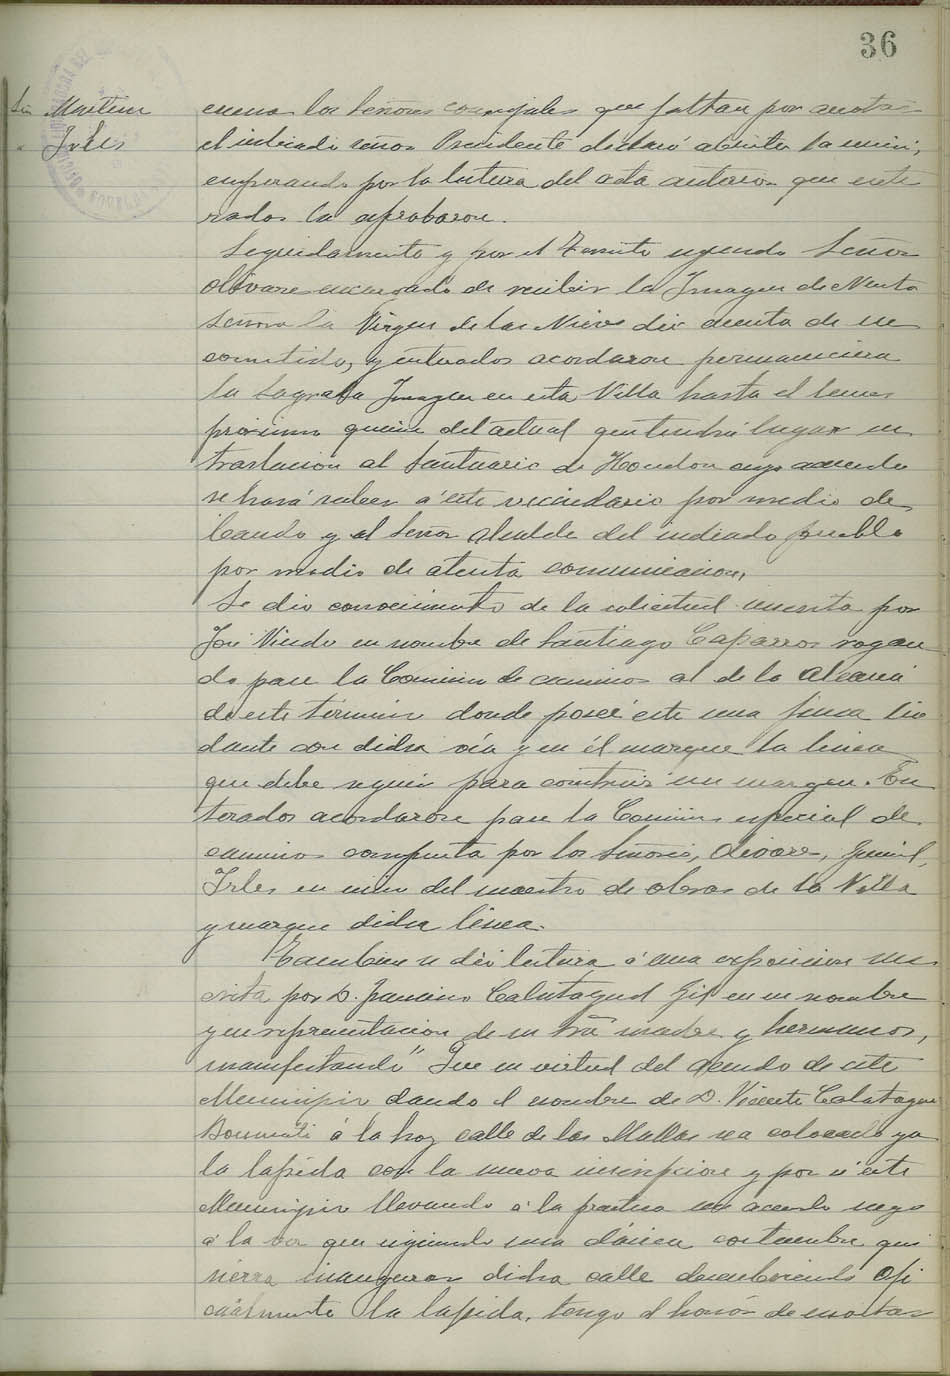 36
Martinez
Irles
los Señores concejales que faltan por
el indicado señor Presidente declaró abierta la
empezando por la lectura del acta anterior que ente
rados la aprobaron.
Seguidamente y por el Teniente segundo Señor
Olivares encargado de recibir la Imagen de Nuestra
Señora la Virgen de las Nieves dió cuenta de su
cometido, y enterados acordaron permaneciera
la Sagrada Imagen en esta Villa hasta el lunes
próximo quince del actual que tendrá lugar su
traslacion al Santuario de Hondon cuyo acuerdo
se hará saber á este vecindario por medio de
bando y al Señor Alcalde del indicado pueblo
por medio de atenta comunicacion.
Se dió conocimiento de la solicitud suscrita por
José en nombre de Santiago Caparros rogan
do pase la Comision de caminos al de la
de este término donde posee este una finca lin
dante con dicha via y en él marque la linea
que debe seguir para construir un margen. En
terados acordaron pase la Comision especial de
caminos compuesta por los Señores, Olivares,
Irles en union del maestro de obras de la Villa
y marque dicha linea.
Tambien se dió lectura á una exposicion sus
crita por D. Francisco Calatayud Gil en su nombre
y en representacion de su Sra madre y hermanos,
manifestando "Que en virtud del acuerdo de este
Municipio dando el nombre de D. Vicente Calatayud
á la hoy calle de las Mallas sea colocado ya
la lapida con la nueva inscripcion y por si este
Municipio llevando á la practica su acuerdo
á la vez que siguiendo una clásica costumbre qui
siera inaugurar dicha calle descubriendo ofi
cialmente la lapida, tengo el honor de